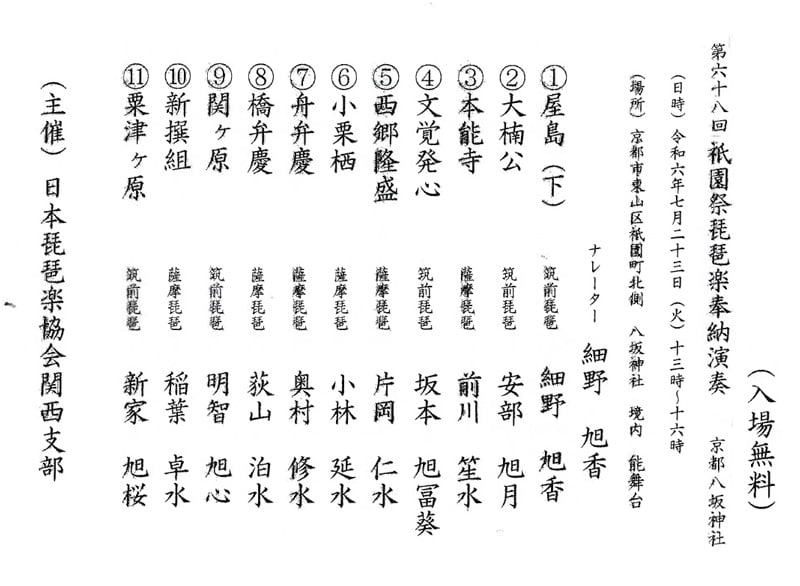 （入場無料）
第六十八回 祇園祭琵琶楽奉納演奏 京都八坂神社
（日時）令和六年七月二十三日（火）十三時～十六時
（場所）京都市東山区祇園町北側 八坂神社 境内 能舞台
ナレーター 細野 旭香
①屋島（下） 筑前琵琶 細野 旭香
②大楠公 筑前琵琶 安部 旭月
③本能寺 薩摩琵琶 前川 笙水
④文覚発心 筑前琵琶 坂本 旭冨葵
⑤西郷隆盛 薩摩琵琶 片岡 仁水
⑥小栗栖 薩摩琵琶 小林 延水
⑦舟弁慶 薩摩琵琶 奥村 修水
⑧橋弁慶 薩摩琵琶 荻山 泊水
⑨関ヶ原 筑前琵琶 明智 旭心
⑩新撰組 薩摩琵琶 稲葉 卓水
⑪粟津ヶ原 筑前琵琶 新家 旭桜
（主催）日本琵琶楽協会関西支部